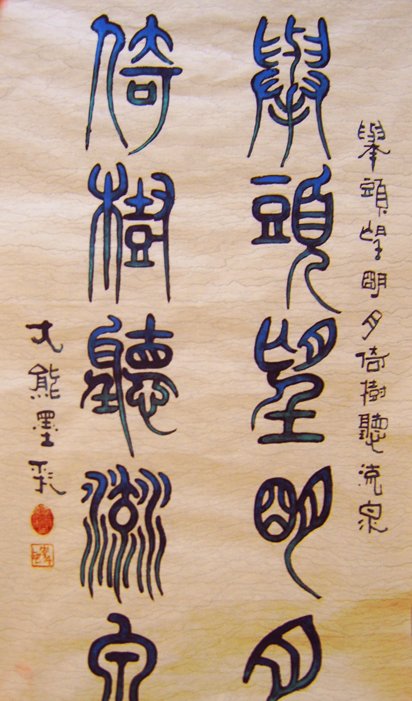 舉頭望明月倚樹聽流泉
舉頭望明月
倚樹聽流泉
大熊墨彩